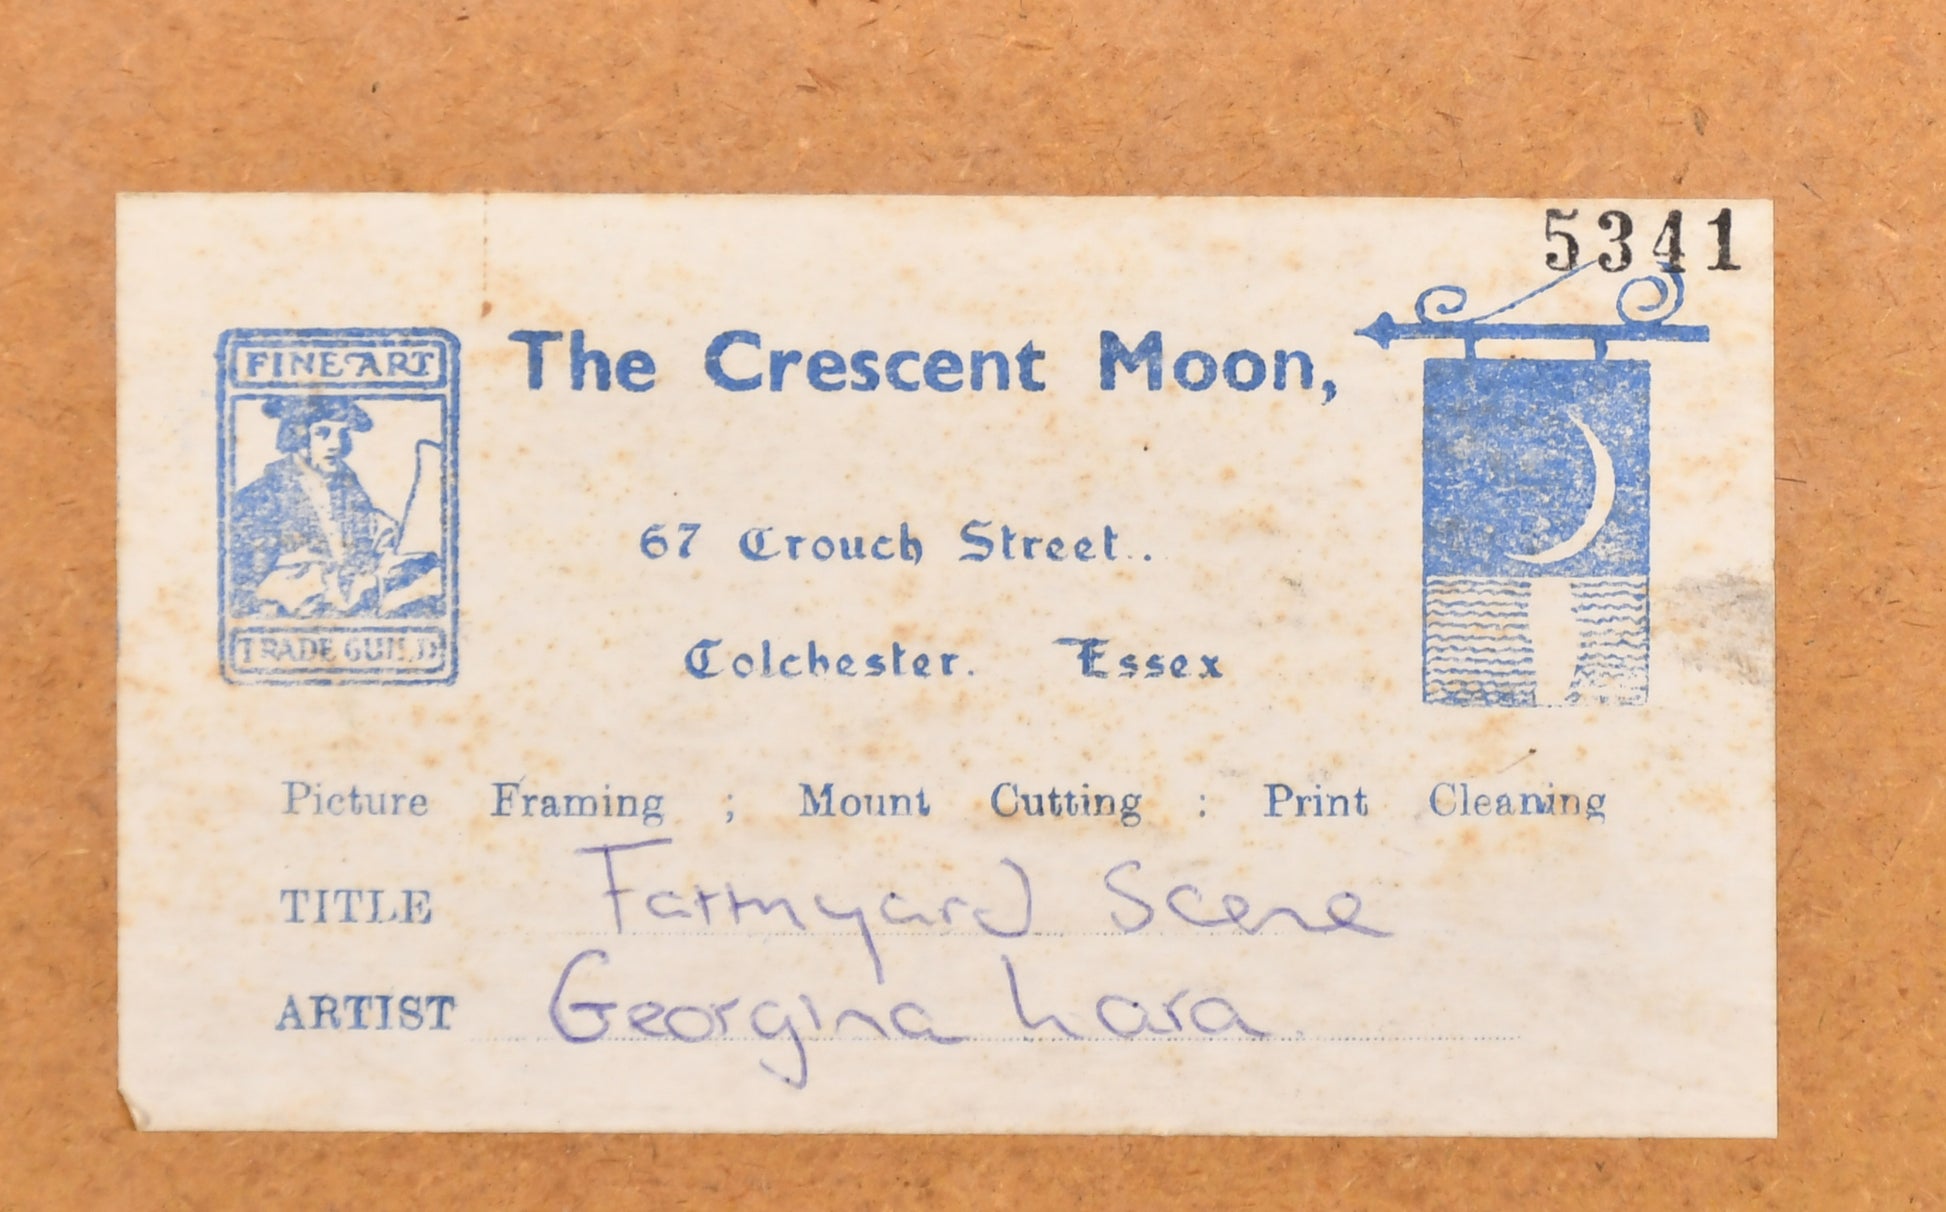 5341
FINE ART
TRADE GUILD
The Crescent Moon,
67 Crouch Street.
Colchester. Essex
Picture Framing ; Mount Cutting : Print Cleaning
TITLE Farmyard Scene
ARTIST Georgina Lara